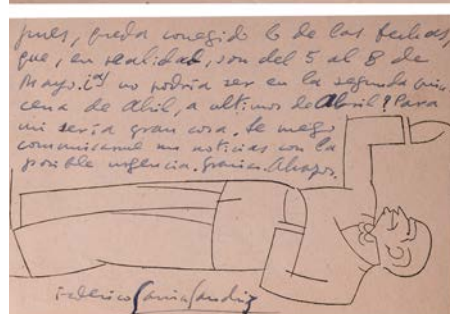 pues, queda corregido lo de las fechas,
que, en realidad, son del 5 al 8 de
Mayo. ¿Y no podría ser en la segunda quin
cena de Abril, a ultimos de Abril? Para
mi sería gran cosa. Le ruego
comunicarme sus noticias con la
posible urgencia. Gracias. Abrazos.
Federico